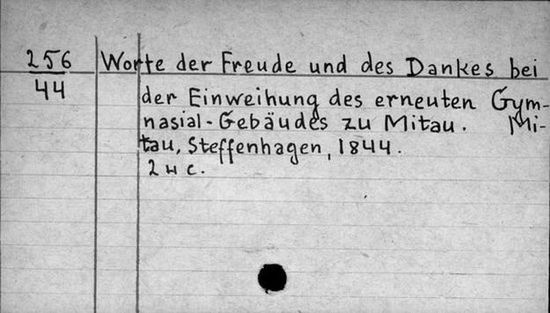 256 Worte der Freude und des Dankes bei
44
der Einweihung des erneuten Gym-
nasial-Gebäudes zu Mitau. Mi-
tau, Steffenhagen, 1844.
2 н с.